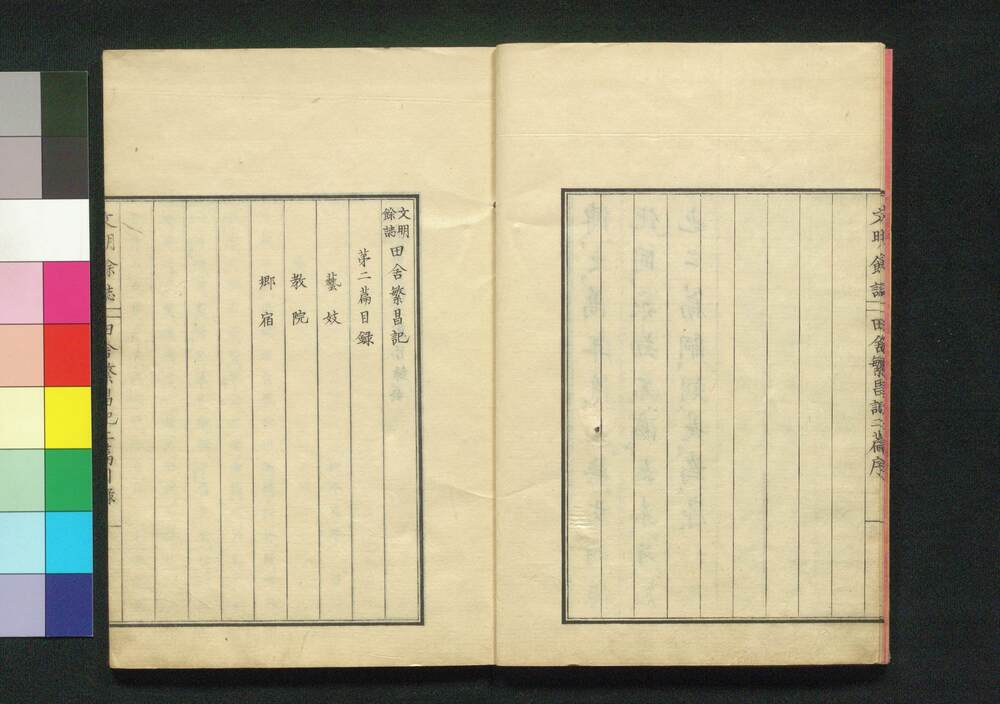 文明餘誌 田舍繁昌記二篇序
文明
餘誌
田舍繁昌記
第二篇目錄
藝妓
教院
鄉宿
文明餘誌 田舍繁昌記二篇目錄